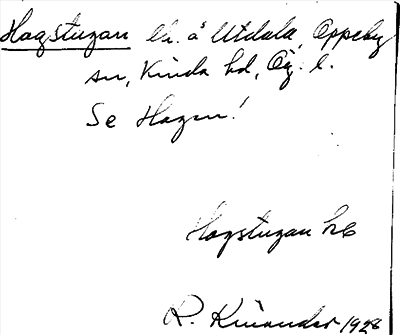 Hagstugan lh. å Utdala, Oppeby
sn, Kinda hd, Ög. l.
Se Hagen!
Hagstugan
R. Kinander 1928